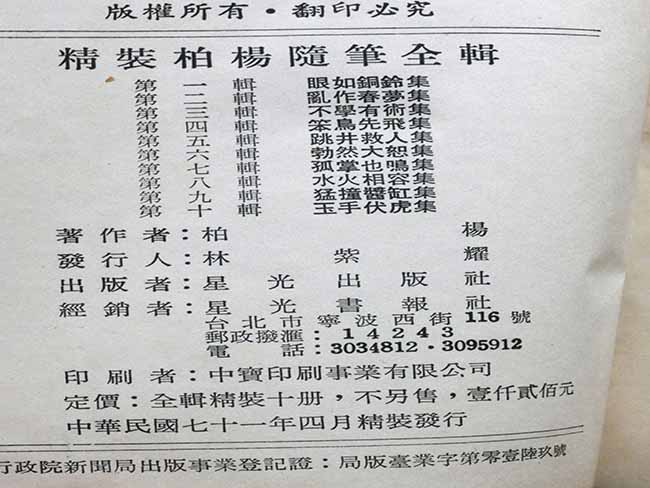 版權所有·翻印必究
精裝柏楊隨筆全輯
第一輯 眼如銅鈴集
第二輯 亂作春夢集
第三輯 不學有術集
第四輯 笨鳥先飛集
第五輯 跳井救人集
第六輯 勃然大恕集
第七輯 孤掌也鳴集
第八輯 水火相容集
第九輯 猛撞醬缸集
第十輯 玉手伏虎集
著作者：柏楊
發行人：林紫耀
出版者：星光出版社
經銷者：星光書報社
台北市寧波西街116號
郵政撥滙：14243
電話：3034812·3095912
印刷者：中寶印刷事業有限公司
定價：全輯精裝十册，不另售，壹仟貳佰元
中華民國七十一年四月精裝發行
行政院新聞局出版事業登記證：局版臺業字第零壹陸玖號